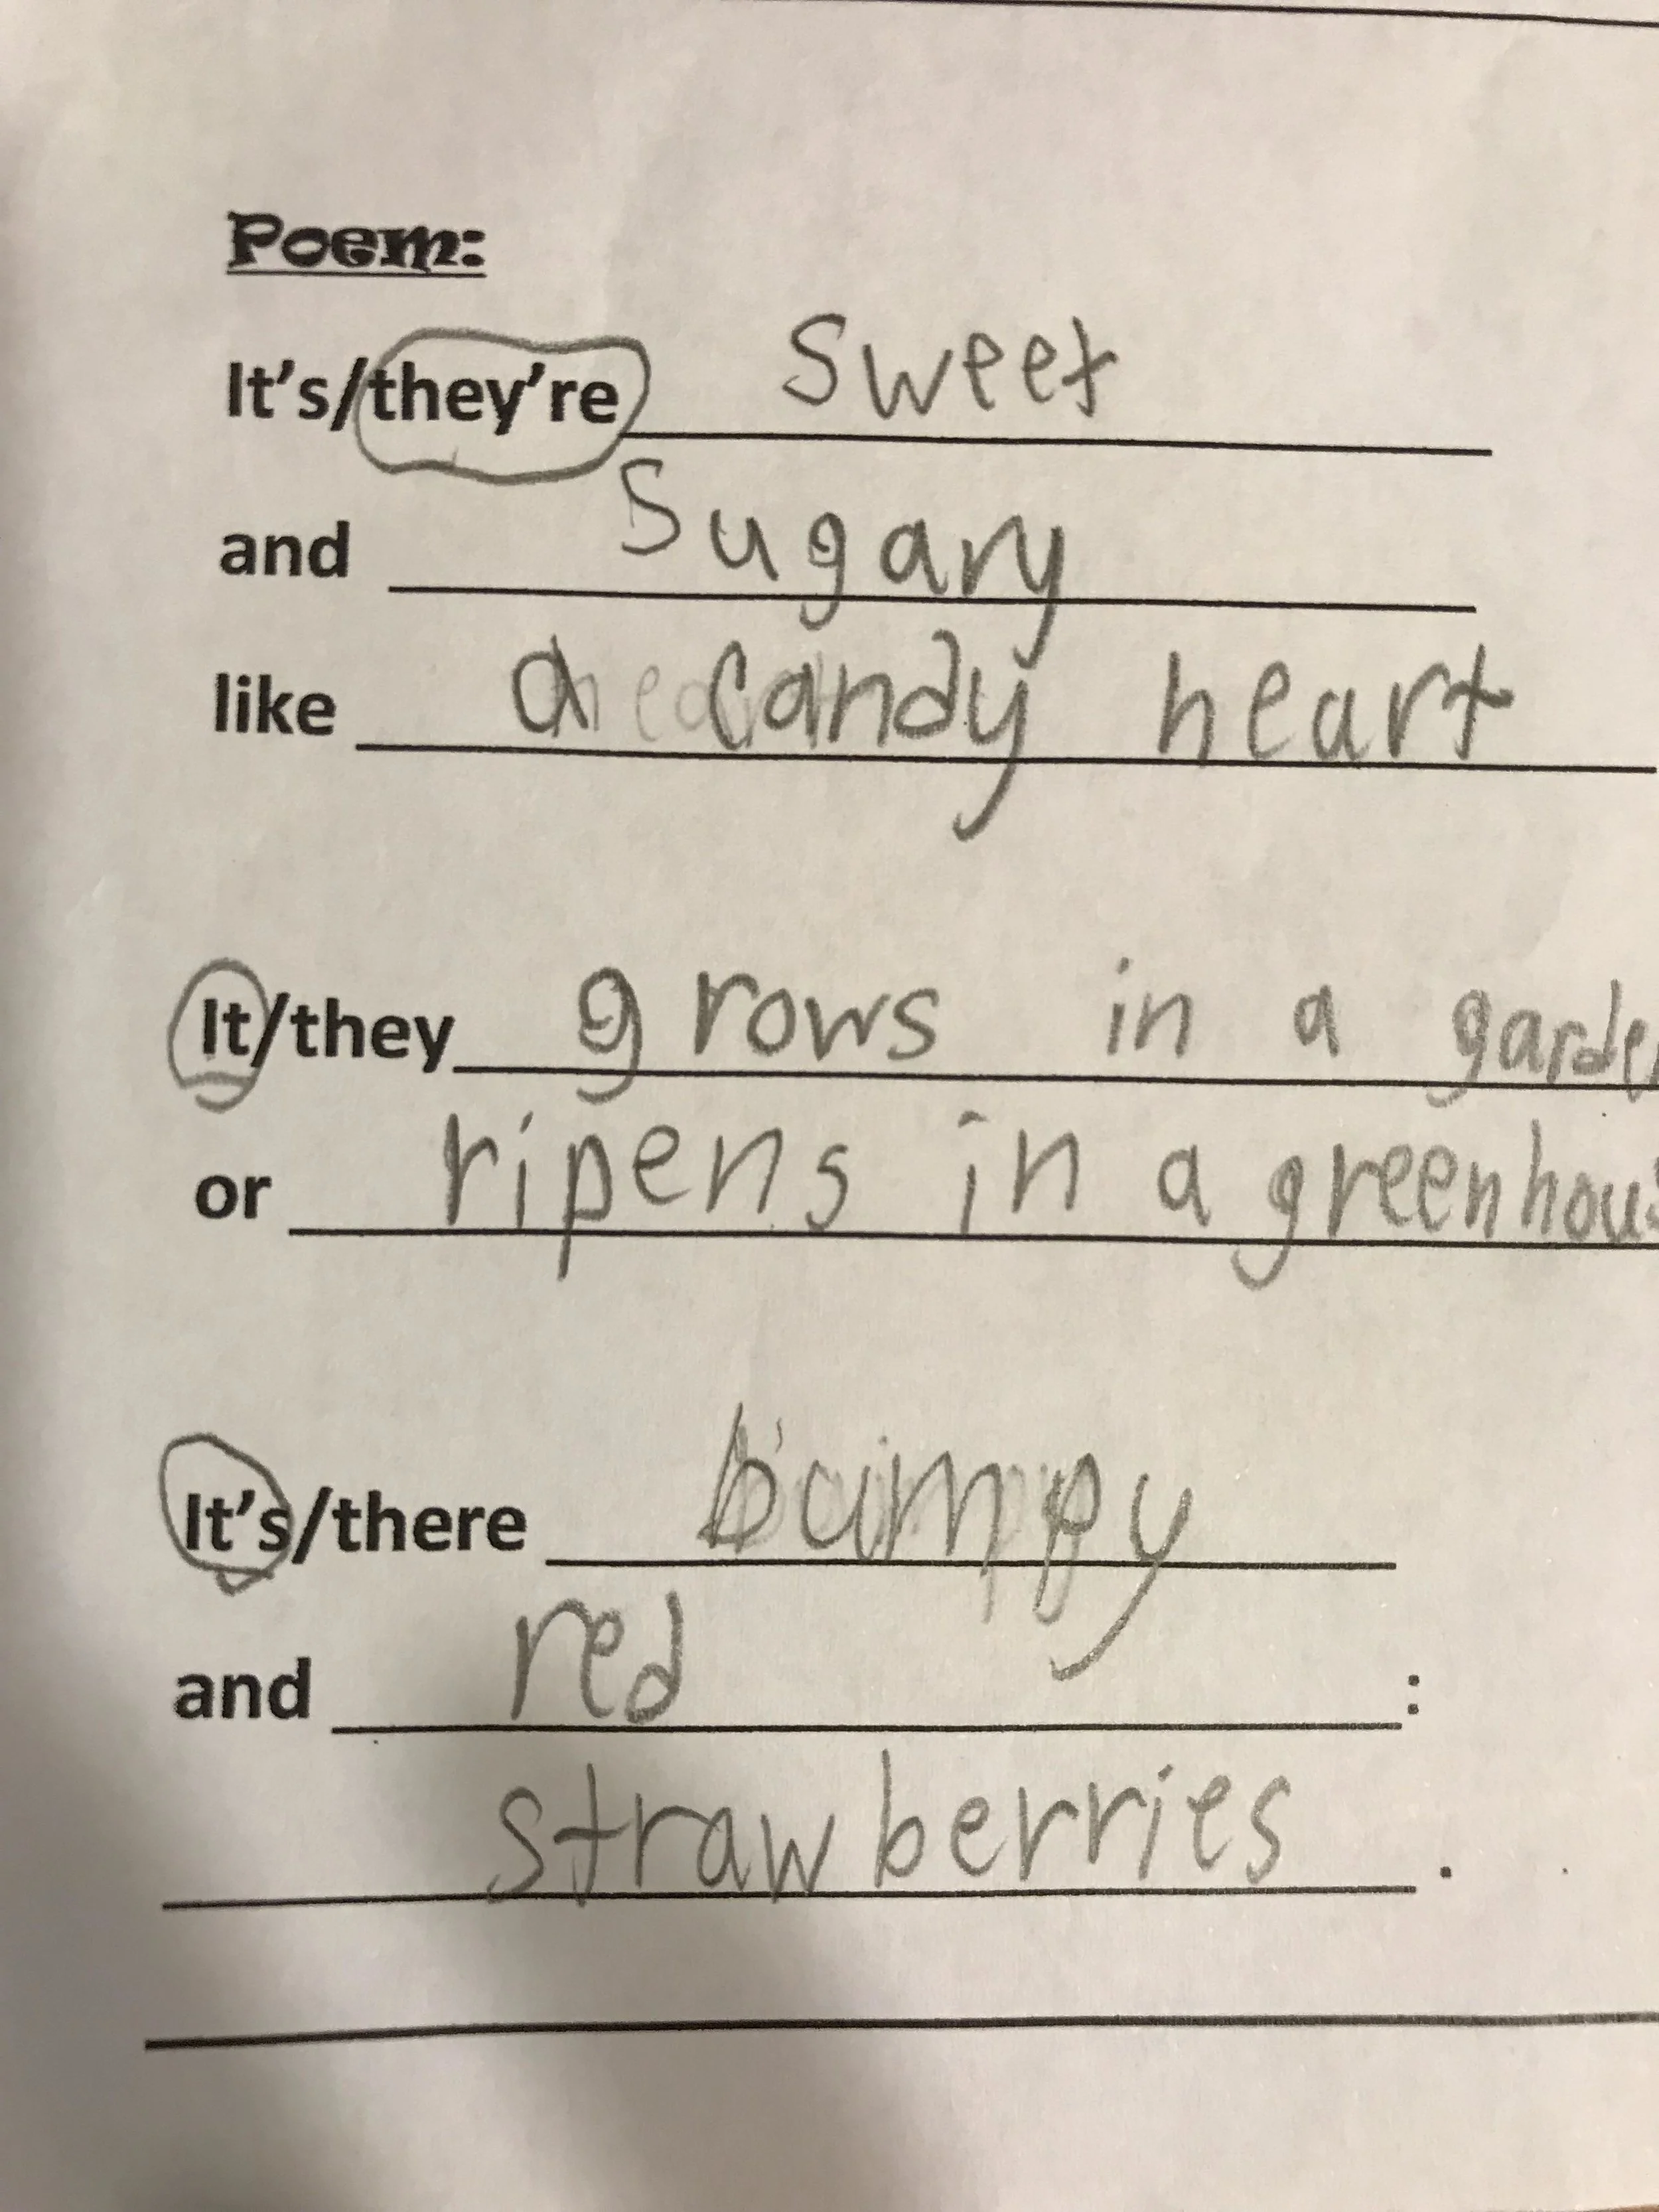 Poem:
It's/they're sweet
and Sugary
like a candy heart
It/they grows in a garde
or ripens in a greenhous
It's/there bumpy
and red :
strawberries .